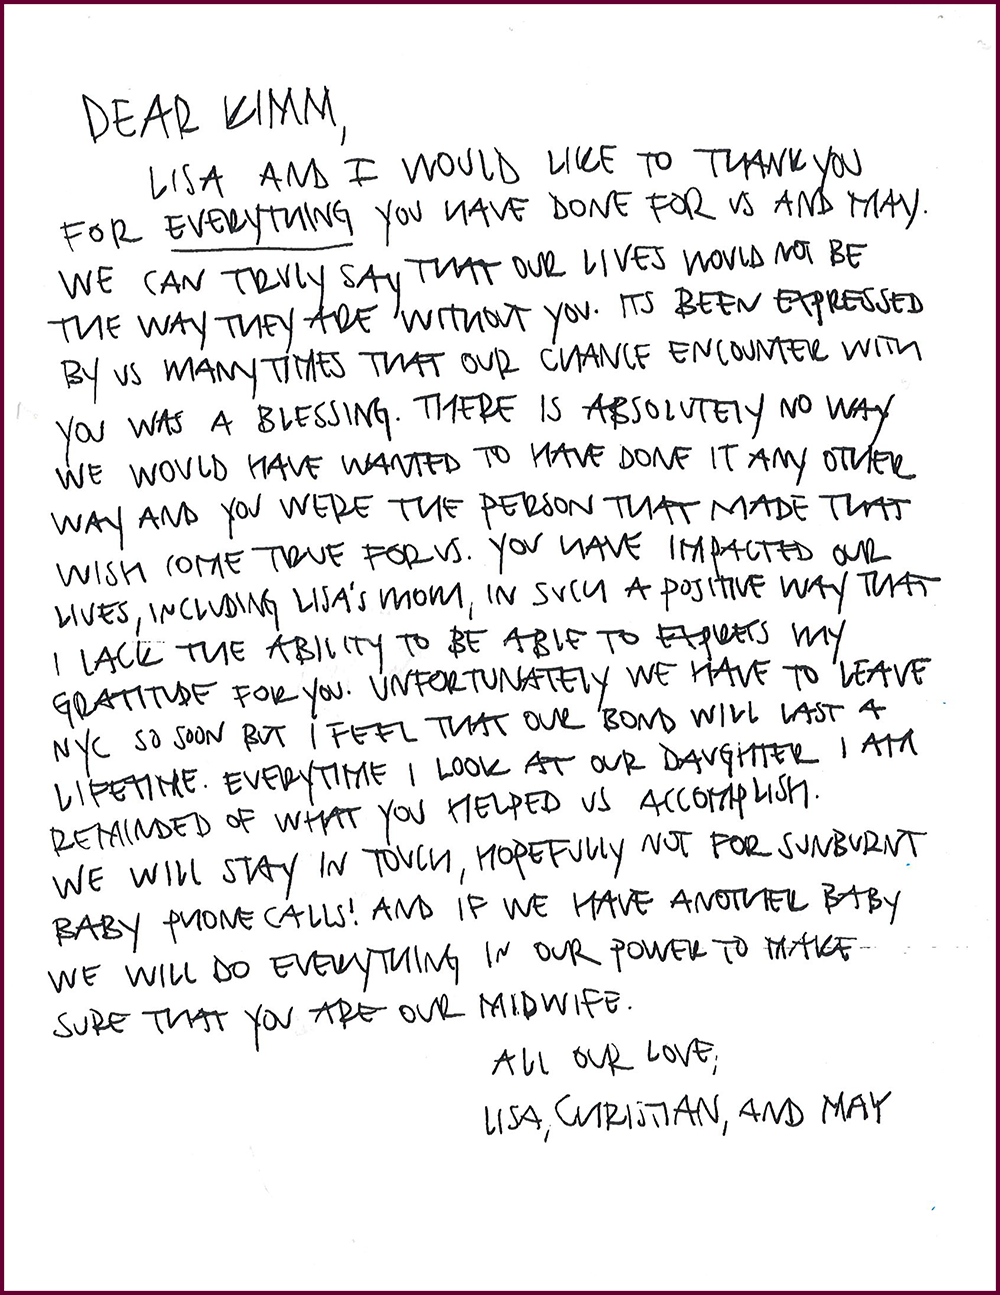 DEAR KIMM,
LISA AND I WOULD LIKE TO THANK YOU
FOR EVERYTHING YOU HAVE DONE FOR US AND MAY.
WE CAN TRULY SAY THAT OUR LIVES WOULD NOT BE
THE WAY THEY ARE WITHOUT YOU. ITS BEEN EXPRESSED
BY US MANY TIMES THAT OUR CHANCE ENCOUNTER WITH
YOU WAS A BLESSING. THERE IS ABSOLUTELY NO WAY
WE WOULD HAVE WANTED TO HAVE DONE IT ANY OTHER
WAY AND YOU WERE THE PERSON THAT MADE THAT
WISH COME TRUE FOR US. YOU HAVE IMPACTED OUR
LIVES, INCLUDING LISA'S MOM, IN SUCH A POSITIVE WAY THAT
I LACK THE ABILITY TO BE ABLE TO EXPRESS MY
GRATITUDE FOR YOU. UNFORTUNATELY WE HAVE TO LEAVE
NYC SO SOON BUT I FEEL THAT OUR BOND WILL LAST A
LIFETIME. EVERYTIME I LOOK AT OUR DAUGHTER I AM
REMINDED OF WHAT YOU HELPED US ACCOMPLISH.
WE WILL STAY IN TOUCH, HOPEFULLY NOT FOR SUNBURNT
BABY PHONE CALLS! AND IF WE HAVE ANOTHER BABY
WE WILL DO EVERYTHING IN OUR POWER TO MAKE
SURE THAT YOU ARE OUR MIDWIFE.
ALL OUR LOVE,
LISA, CHRISTIAN, AND MAY